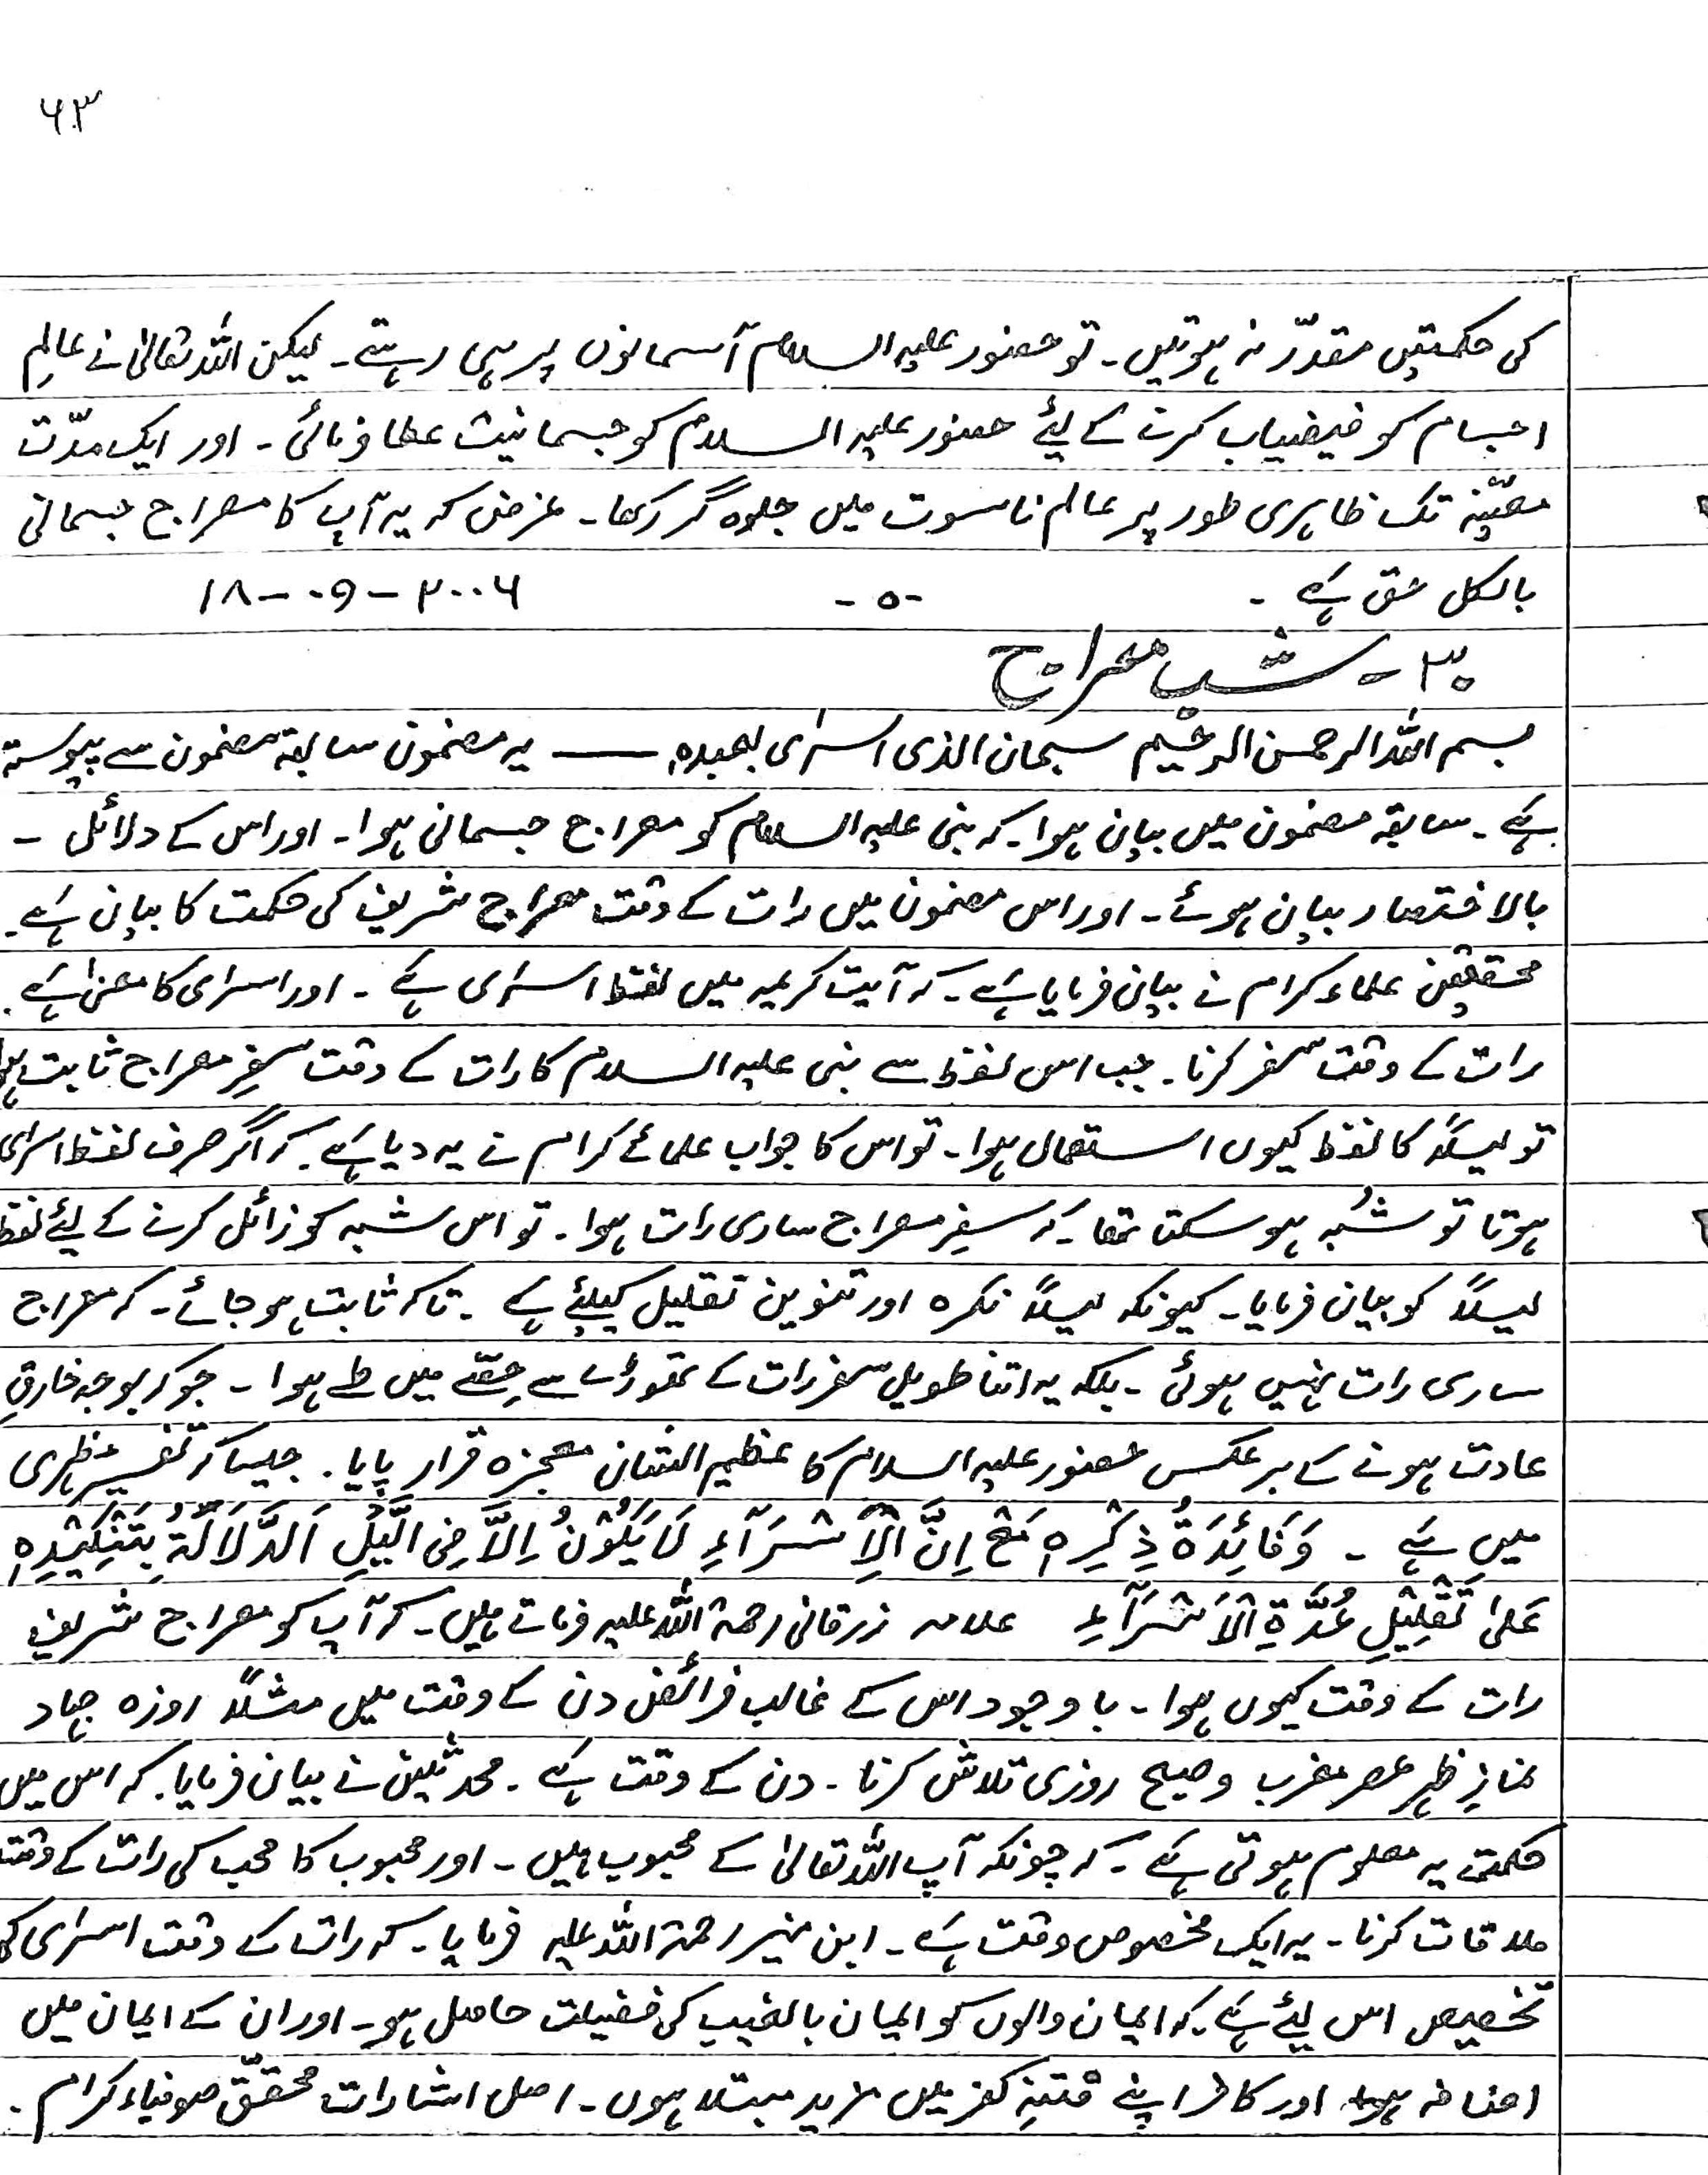 ۶۳
کی حکمتیں مقدّر نہ ہوتیں۔ تو حضور علیہ السلام آسمانوں پر ہی رہتے۔ لیکن اللہ تعالیٰ نے عالمِ
اجسام کو فیضیاب کرنے کے لئے حضور علیہ السلام کو جسمانیت عطا فرمائی۔ اور ایک مدّت
معیّنہ تک ظاہری طور پر عالم ناسوت میں جلوہ گر رکھا۔ غرض کہ یہ آپ کا معراج جسمانی
بالکل حق ہے ۔ -۵- ۱۸-۰۹-۲۰۰۶
۳۰ - شب معراج
بسم اللہ الرحمن الرحیم سبحان الذی اسرٰی بعبدہٖ —— یہ مضمون سابقہ مضمون سے پیوستہ
ہے۔ سابقہ مضمون میں بیان ہوا۔ کہ نبی علیہ السلام کو معراج جسمانی ہوا۔ اور اس کے دلائل ۔
بالاختصار بیان ہوئے۔ اور اس مضمون میں رات کے وقت معراج شریف کی حکمت کا بیان ہے۔
محققین علماء کرام نے بیان فرمایا ہے۔ کہ آیت کریمہ میں لفظ اسرٰی ہے ۔ اور اسرٰی کا معنیٰ ہے۔
رات کے وقت سفر کرنا۔ جب اس لفظ سے نبی علیہ السلام کا رات کے وقت سفرِ معراج ثابت ہوا
تو لیلاً کا لفظ کیوں استعمال ہوا۔ تو اس کا جواب علمائے کرام نے یہ دیا ہے۔ کہ اگر صرف لفظ اسرٰی
ہوتا تو شُبہ ہو سکتا تھا۔ کہ سفرِ معراج ساری رات ہوا۔ تو اس شبہ کو زائل کرنے کے لئے لفظ
لیلاً کو بیان فرمایا۔ کیونکہ لیلاً نکرہ اور تنوین تقلیل کیلئے ہے ۔ تاکہ ثابت ہو جائے۔ کہ معراج
ساری رات نہیں ہوئی ۔ بلکہ یہ اتنا طویل سفر رات کے تھوڑے سے حِصّے میں طے ہوا ۔ جو کہ بوجہ خارقِ
عادت ہونے کے برعکس حضور علیہ السلام کا عظیم الشان معجزہ قرار پایا۔ جیسا کہ تفسیر مظہری
میں ہے ۔ وَفَائِدَۃُ ذِکْرِہٖ مَعَ اِنَّ الْاِسْرَآءِ لَا یَکُوْنُ اِلَّا فِی الَّیْلِ اَلدَّلَالَۃُ بِتَنْکِیْرِہٖ
عَلیٰ تَقْلِیْلِ مُدَّۃِ الْاَسْرَآءِ علامہ زرقانی رحمۃ اللہ علیہ فرماتے ہیں۔ کہ آپ کو معراج شریف
رات کے وقت کیوں ہوا۔ باوجود اس کے غالب فرائض دن کے وقت میں مثلاً روزہ جہاد
نمازِ ظہر عصر مغرب و صبح روزی تلاش کرنا ۔ دن کے وقت ہے ۔ محدثین نے بیان فرمایا۔ کہ اس میں
حکمت یہ معلوم ہوتی ہے ۔ کہ چونکہ آپ اللہ تعالیٰ کے محبوب ہیں ۔ اور محبوب کا محب کی رات کے وقت
ملاقات کرنا ۔ یہ ایک مخصوص وقت ہے ۔ ابن منیر رحمۃ اللہ علیہ فرمایا۔ کہ رات کے وقت اسرٰی کی
تخصیص اس لیئے ہے ۔ کہ ایمان والوں کو ایمان بالغیب کی فضیلت حاصل ہو ۔ اور ان کے ایمان میں
اضافہ ہو اور کافر اپنے فتنۂِ کفر میں مزید مبتلا ہوں ۔ اصل اشارات محققّ صوفیاء کرام ۔